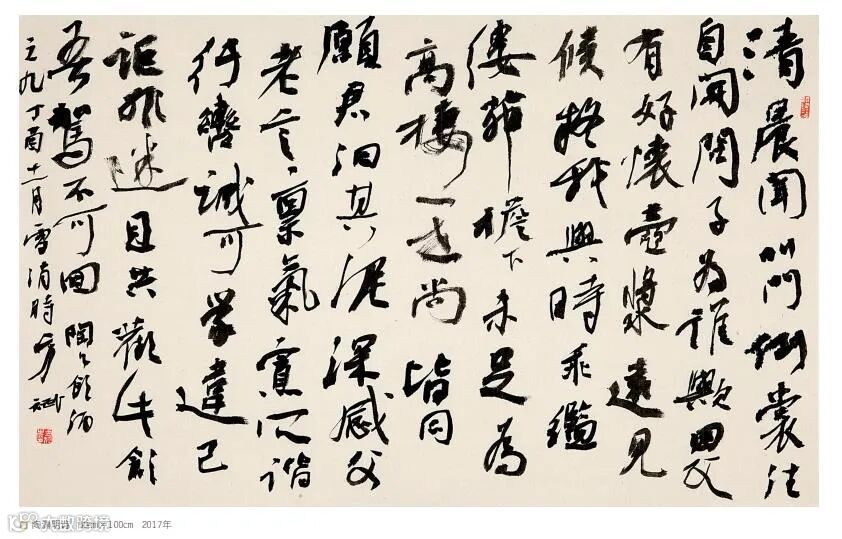 清晨聞叩門倒裳往
自開問子為誰歟田父
有好懷壺漿遠見
候疑我與時乖襤
縷茆檐下未足為
高棲一世尚皆同
願君汩其泥深感父
老言稟氣寡所諧
紆轡誠可學違己
詎非迷且共歡此飲
吾駕不可回 陶公飲酒
之九丁酉十一月雪消時方斌
陶渊明诗 ×100cm 2017年
大数跨境